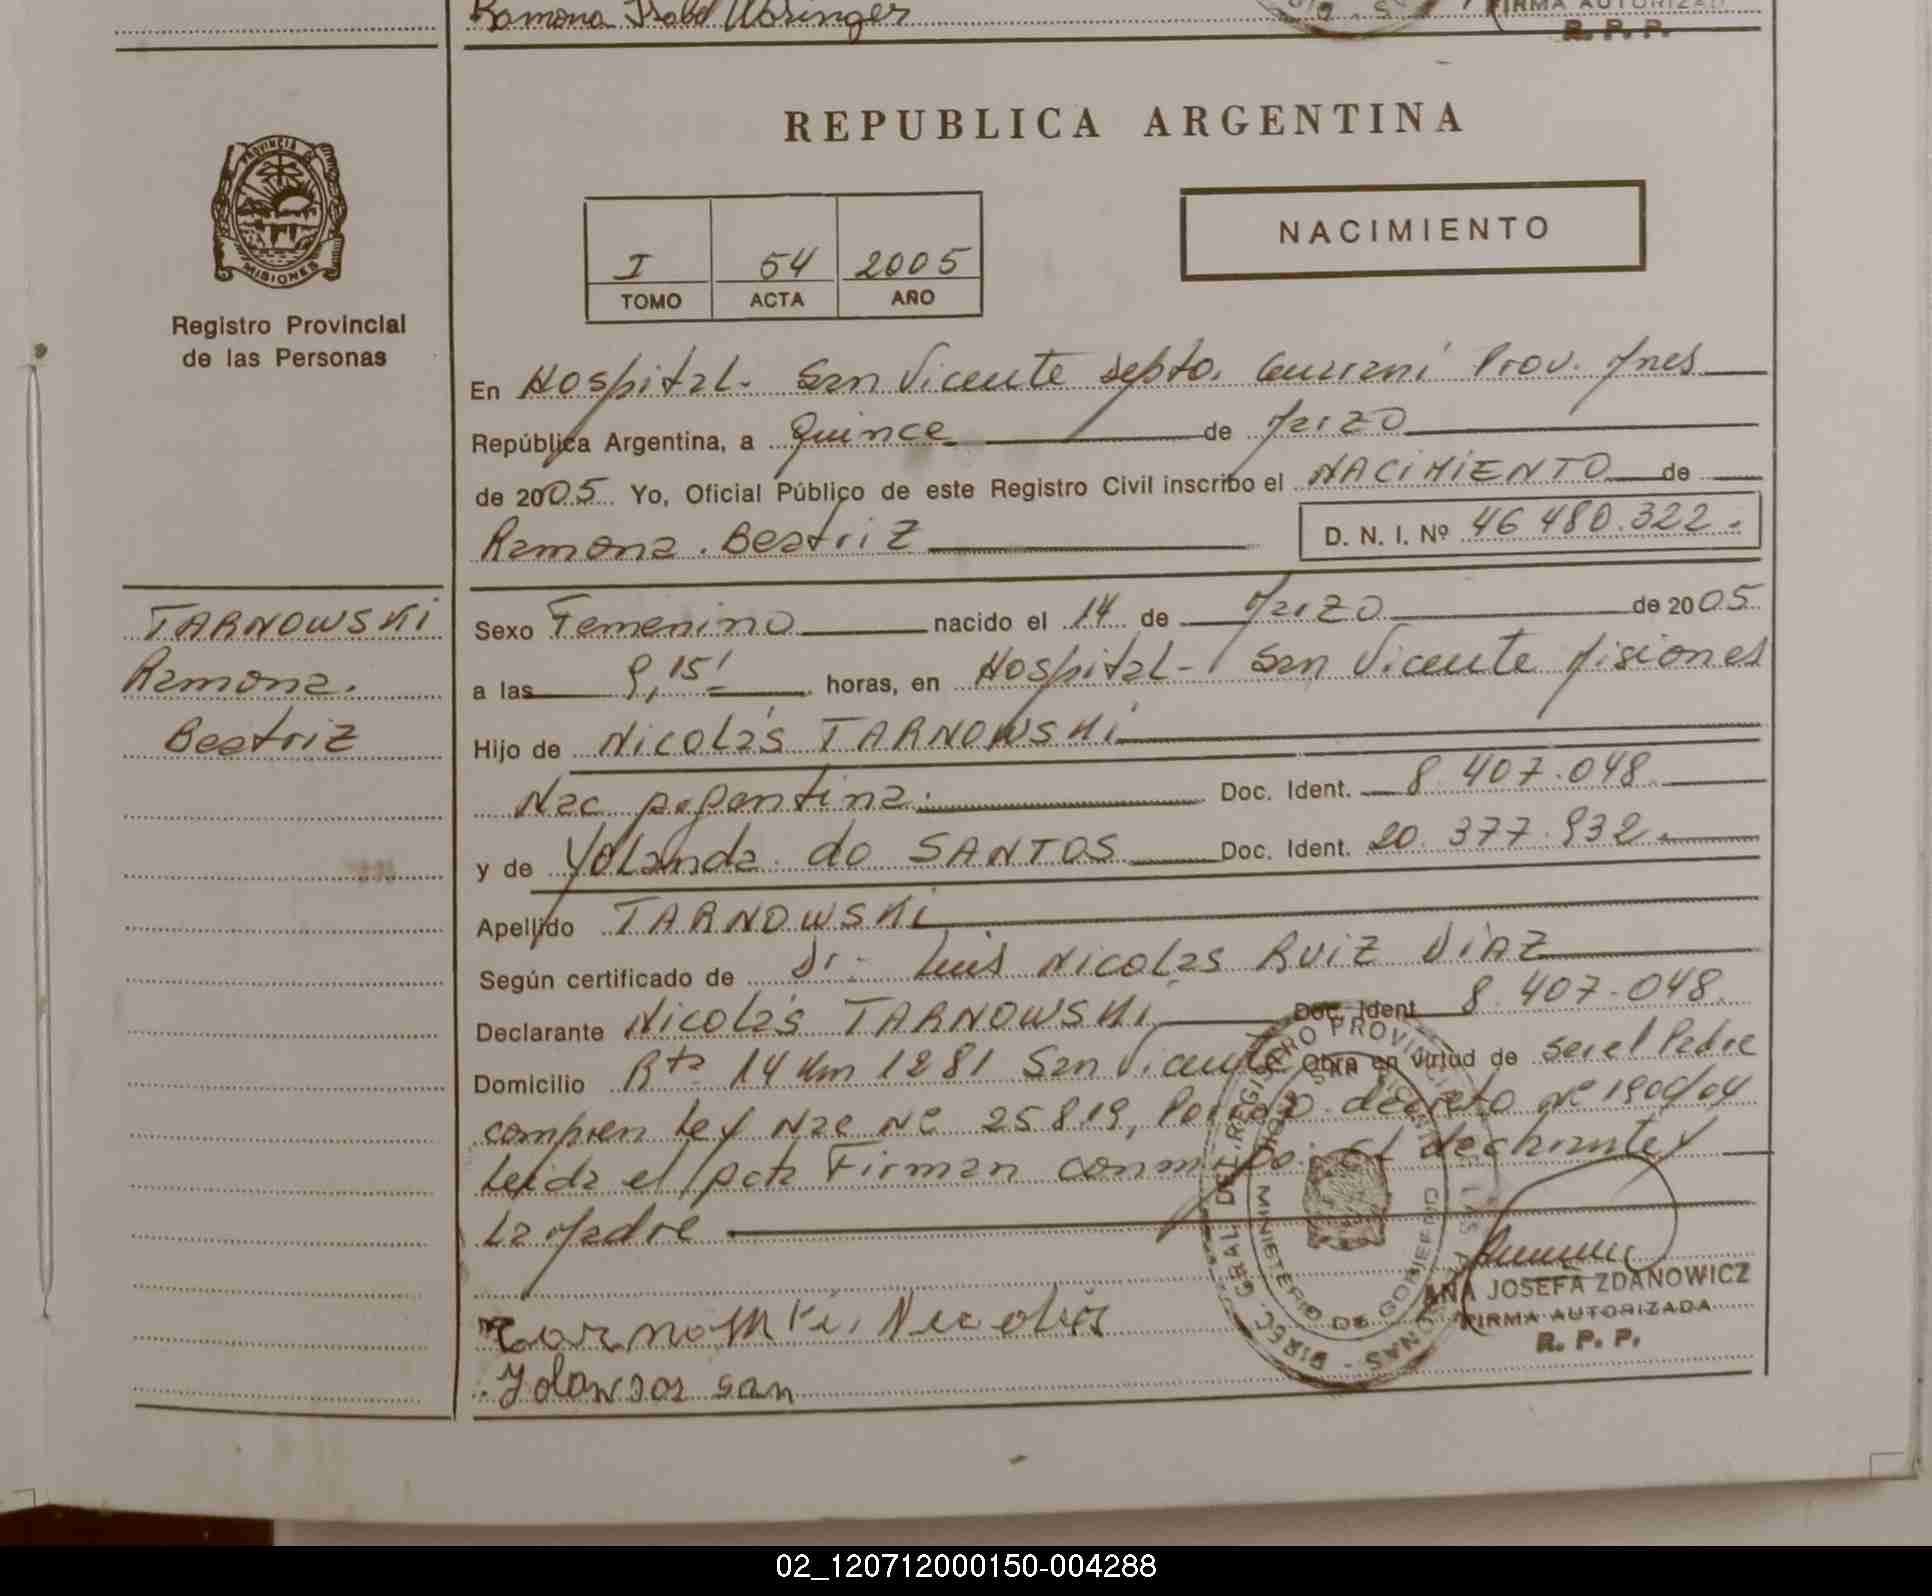 Ramona Isabel Woringer
FIRMA AUTORIZAD
R. P. P.
PROVINCIA DE
MISIONES
Registro Provincial
de las Personas
REPUBLICA ARGENTINA
I 54 2005
TOMO ACTA AÑO
NACIMIENTO
En Hospital- San Vicente Depto. Guarani Prov. Mnes
República Argentina, a Quince de Marzo
de 2005 Yo, Oficial Público de este Registro Civil inscribo el NACIMIENTO de
Ramona. Beatriz D. N. I. Nº 46 480.322.-
TARNOWSKI
Ramona.
Beatriz
Sexo Femenino nacido el 14 de Marzo de 2005
a las 9,15' horas, en Hospital- San Vicente Misiones
Hijo de Nicolás TARNOWSKI
Nac Argentina. Doc. Ident. 8 407.048.
y de Yolanda do SANTOS Doc. Ident. 20.377.932.
Apellido TARNOWSKI
Según certificado de Dr. Luis Nicolas RUIZ DIAZ
Declarante Nicolás TARNOWSKI Doc. Ident 8.407.048.
Domicilio Rta 14 Km 1281 San Vicente Obra en virtud de ser el Padre
Ley Nac Nº 25819, decreto Nº 1900/04
Leida el Acta Firman conmigo. El declarante y
La Madre
Nicolás
DIREC. GRAL. DEL REGISTRO PROVINCIAL DE LAS PERSONAS
MINISTERIO DE GOBIERNO
ANA JOSEFA ZDANOWICZ
FIRMA AUTORIZADA
R. P. P.
02_120712000150-004288